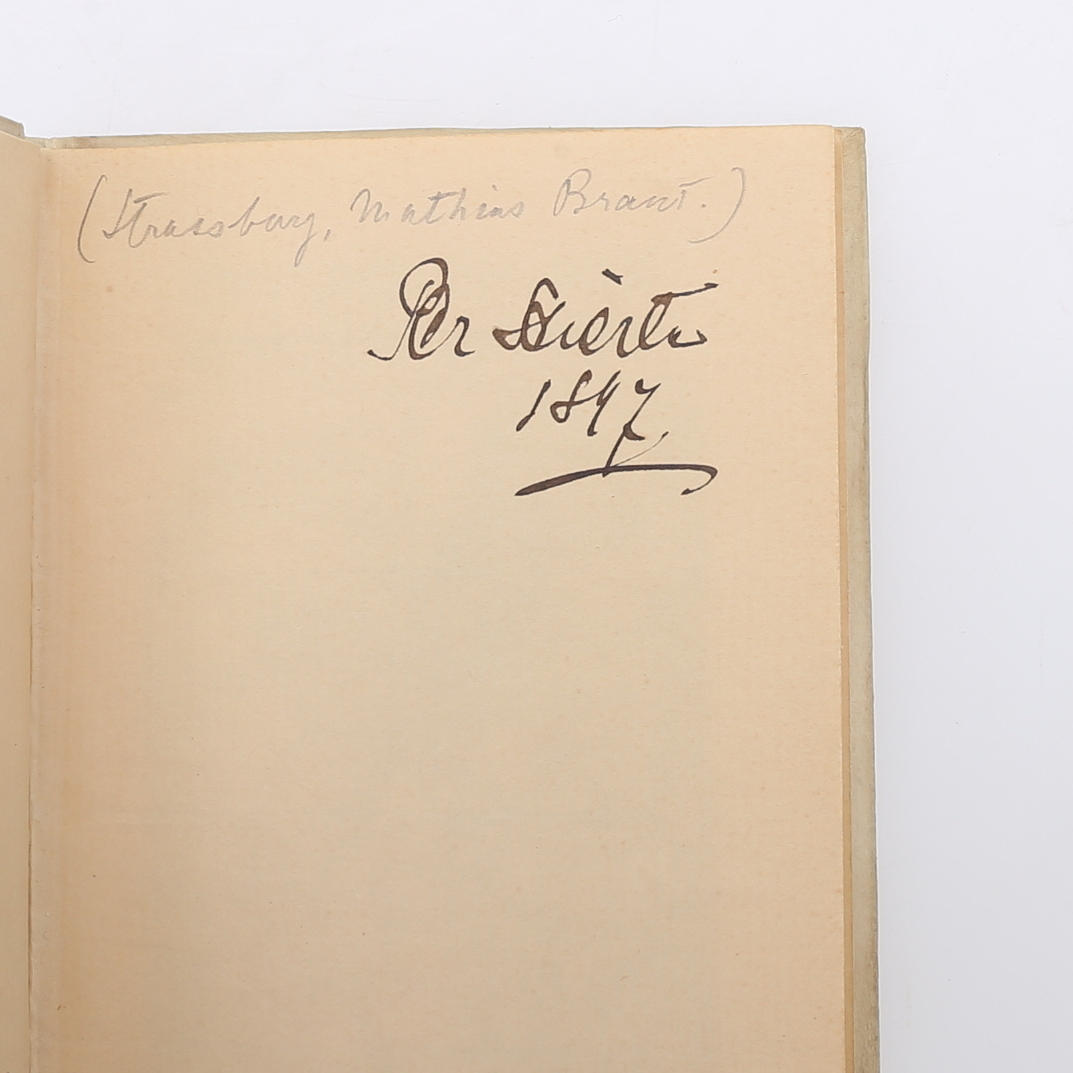 (Strassburg, Mathias Brant.)
Per Hierta
1897